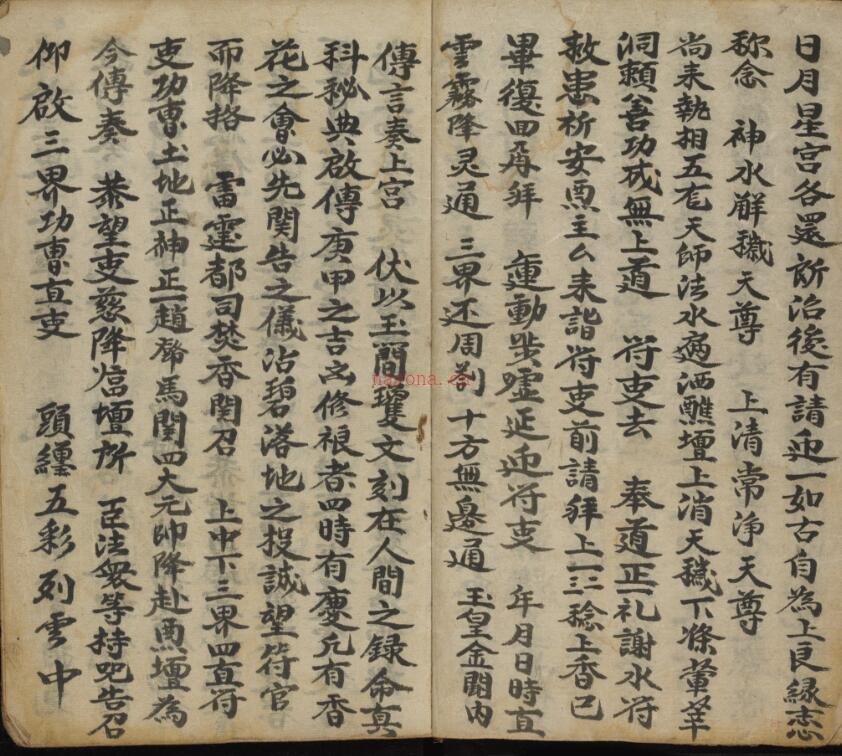 日月星宮各還所治後有請迎一如古自為上良緣志
称念　神水解穢天尊　上清常淨天尊
尚來執相五雹天師法水遍洒醮壇上消天穢下滌葷莘
洞賴善功成無上道　符吏去　奉道正一礼謝水符
救患祈安　主么来詣符吏前請拜上三捻上香已
畢復四再拜　運動步虛延迎符吏　年月日時直
雲霧降灵通　三界还周剳　十方無邊通　玉皇金閣內
傳言奏上宮　伏以玉間瓊文刻在人間之錄命真
科秘典啟傳庚甲之吉凶修禳者四時有慶凡有香
花之會必先関告之儀沾碧落地之投誠望符官
而降格　雷霆都司焚香関召　上中下三界四直符
吏功曹土地正神正一趙鄧馬関四大元帅降赴壇為
今傳奏　恭望吏慈降臨壇所　臣法衆等持呪告召
仰啟三界功曹直吏　頭纏五彩列雲中
nayona.cn